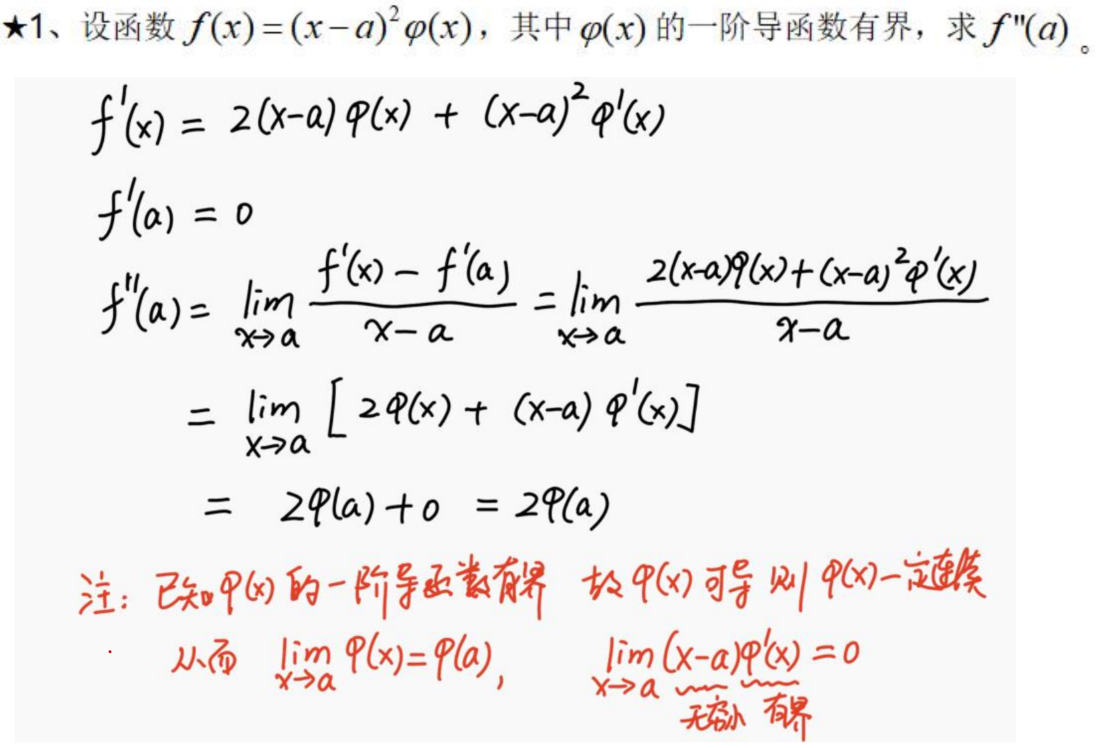 ★1、设函数 f(x)=(x-a)²φ(x)，其中 φ(x) 的一阶导函数有界，求 f"(a)。
f'(x) = 2(x-a)φ(x) + (x-a)²φ'(x)
f'(a) = 0
f''(a) = lim_{x→a} (f'(x) - f'(a))/(x-a) = lim_{x→a} (2(x-a)φ(x)+(x-a)²φ'(x))/(x-a)
= lim_{x→a} [2φ(x) + (x-a)φ'(x)]
= 2φ(a)+0 = 2φ(a)
注：已知φ(x)的一阶导函数有界 故φ(x)可导 则φ(x)一定连续
从而 lim_{x→a} φ(x)=φ(a)， lim_{x→a} (x-a)φ'(x) = 0
无穷小 有界